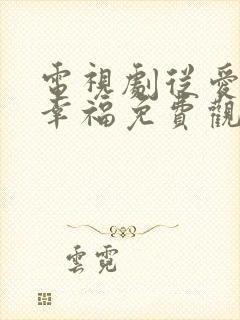 電視劇從愛
幸福免費觀
雲霓